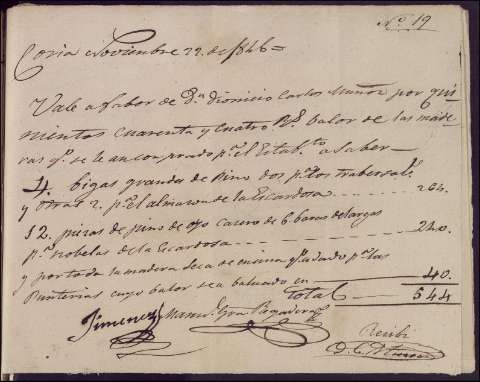 No. 19
Coria Noviembre 22. de 1846=
Vale a fabor de Dn. Dionicio Carlos Muñoz por qui
nientos cuarenta y cuatro Rs. balor de las made
ras qe. se le an conprado pa. el Estabto. a saber—
4. bigas grandes de Pino dos pa. los trabersals.
y otras 2. pa. el almacen de la Escardosa 264.
12. piezas de pino de ojo de 6 baras de largas
pa. de la Escardosa 240.
y por toda la madera seca de qe. a dado pa. las
Punterias cuyo balor sea baluado en 40.
total 544
Jimenez Manuel
Recibi
D. C. Muñoz